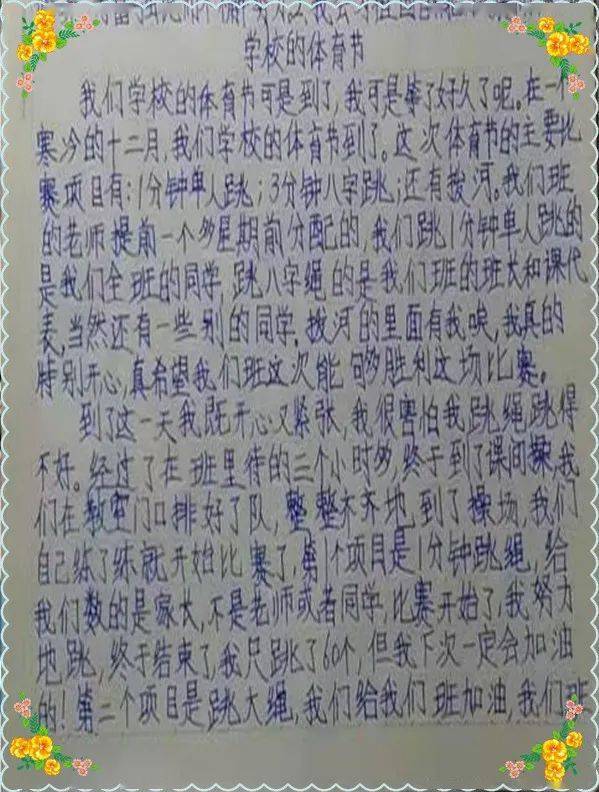 学校的体育节
我们学校的体育节可是到了,我可是等了好久了呢。在一个
寒冷的十二月,我们学校的体育节到了。这次体育节的主要比
赛项目有:1分钟单人跳;3分钟八字跳;还有拨河。我们班
的老师提前一个多星期前分配的,我们跳1分钟单人跳的
是我们全班的同学,跳八字绳的是我们班的班长和课代
表,当然还有一些别的同学,拨河的里面有我唉,我真的
特别开心,真希望我们班这次能够胜利这场比赛。
到了这一天我既开心又紧张,我很害怕我跳绳跳得
不好。经过了在班里待的二个小时多,终于到了课间操,我
们在教室门口排好了队,整整齐齐地到了操场,我们
自己练了练就开始比赛了,第1个项目是1分钟跳绳,给
我们数的是家长,不是老师或者同学,比赛开始了,我努力
地跳,终于结束了,我只跳了60个,但我下次一定会加油
的!第二个项目是跳大绳,我们给我们班加油,我们班